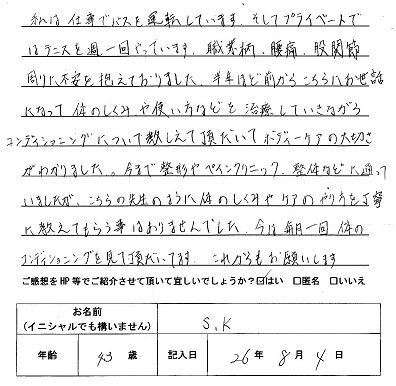 私は仕事でバスを運転しています。そしてプライベートで
はテニスを週一回行っています。職業柄、腰痛、股関節
周りに不安を抱えておりました。半年ほど前からこちらにお世話
になって体のしくみや使い方などを治療していきながら
コンディショニングについて教しえて頂だいてボディーケアの大切さ
がわかりました。今まで整形やペインクリニック、整体などに通って
いましたが、こちらの先生のように体のしくみやケアのやり方を丁寧
に教えてもらう事はありませんでした。今は毎月一回体の
コンディショニングを見て頂だいてます。これからもお願いします
ご感想をHP等でご紹介させて頂いて宜しいでしょうか?☑はい □匿名 □いいえ
お名前
(イニシャルでも構いません) S.K
年齢 43 歳 記入日 26年 8月 4日